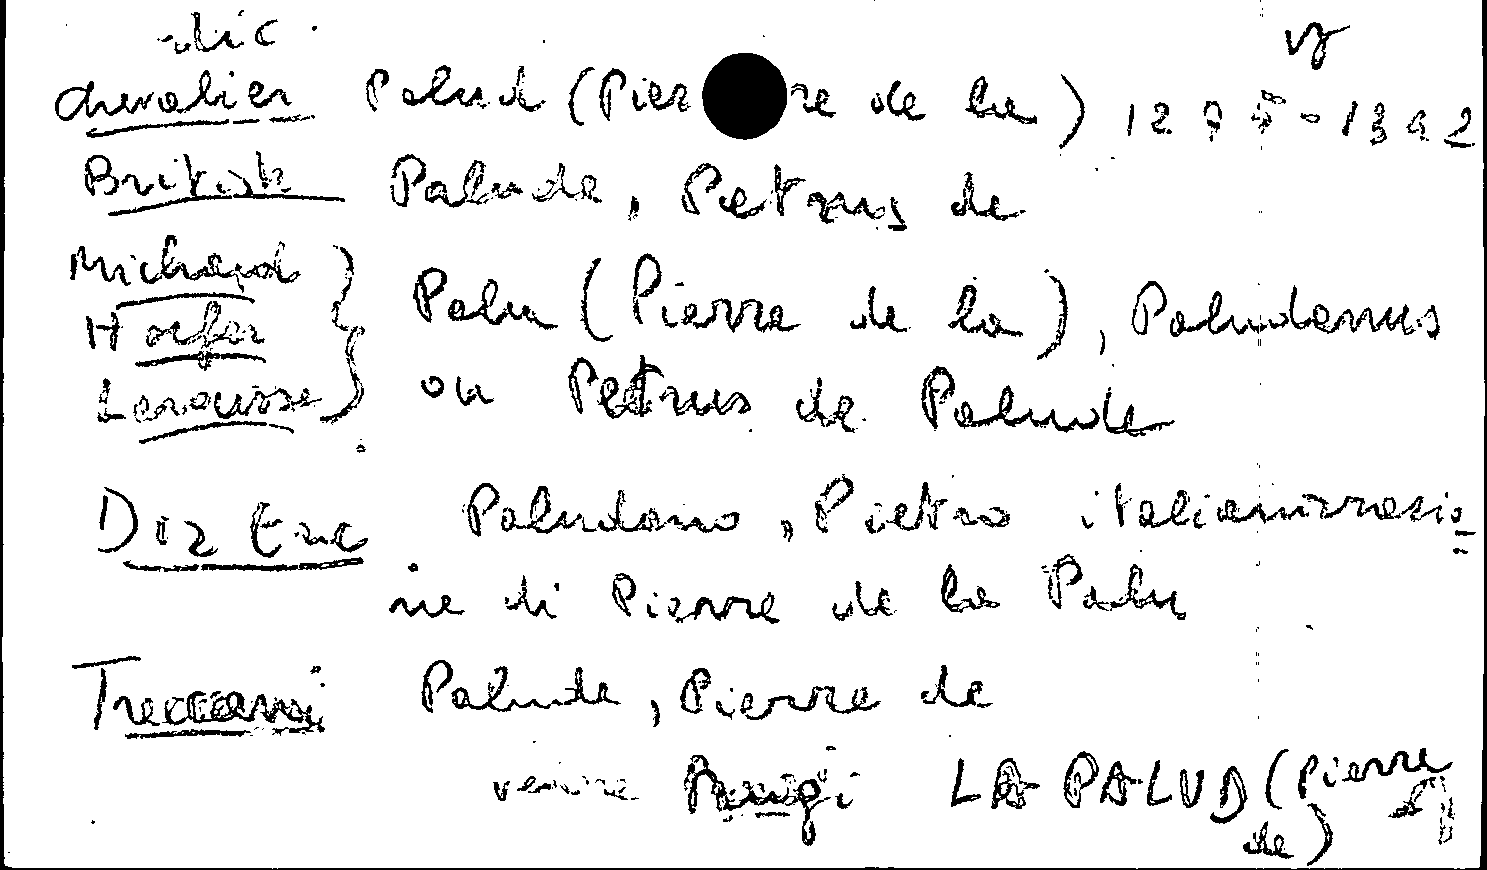 dic.
Chevalier Palud (Pierre de la) 1275-1342
British Palude, Petrus de
Michaud
Hoefer Palu (Pierre de la), Paludanus
Larousse ou Petrus de Palude
Diz Enc Paludano, Pietro italianizzazio=
ne di Pierre de la Palu
Treccani Palude, Pierre de
Parigi LA PALUD (Pierre
de)